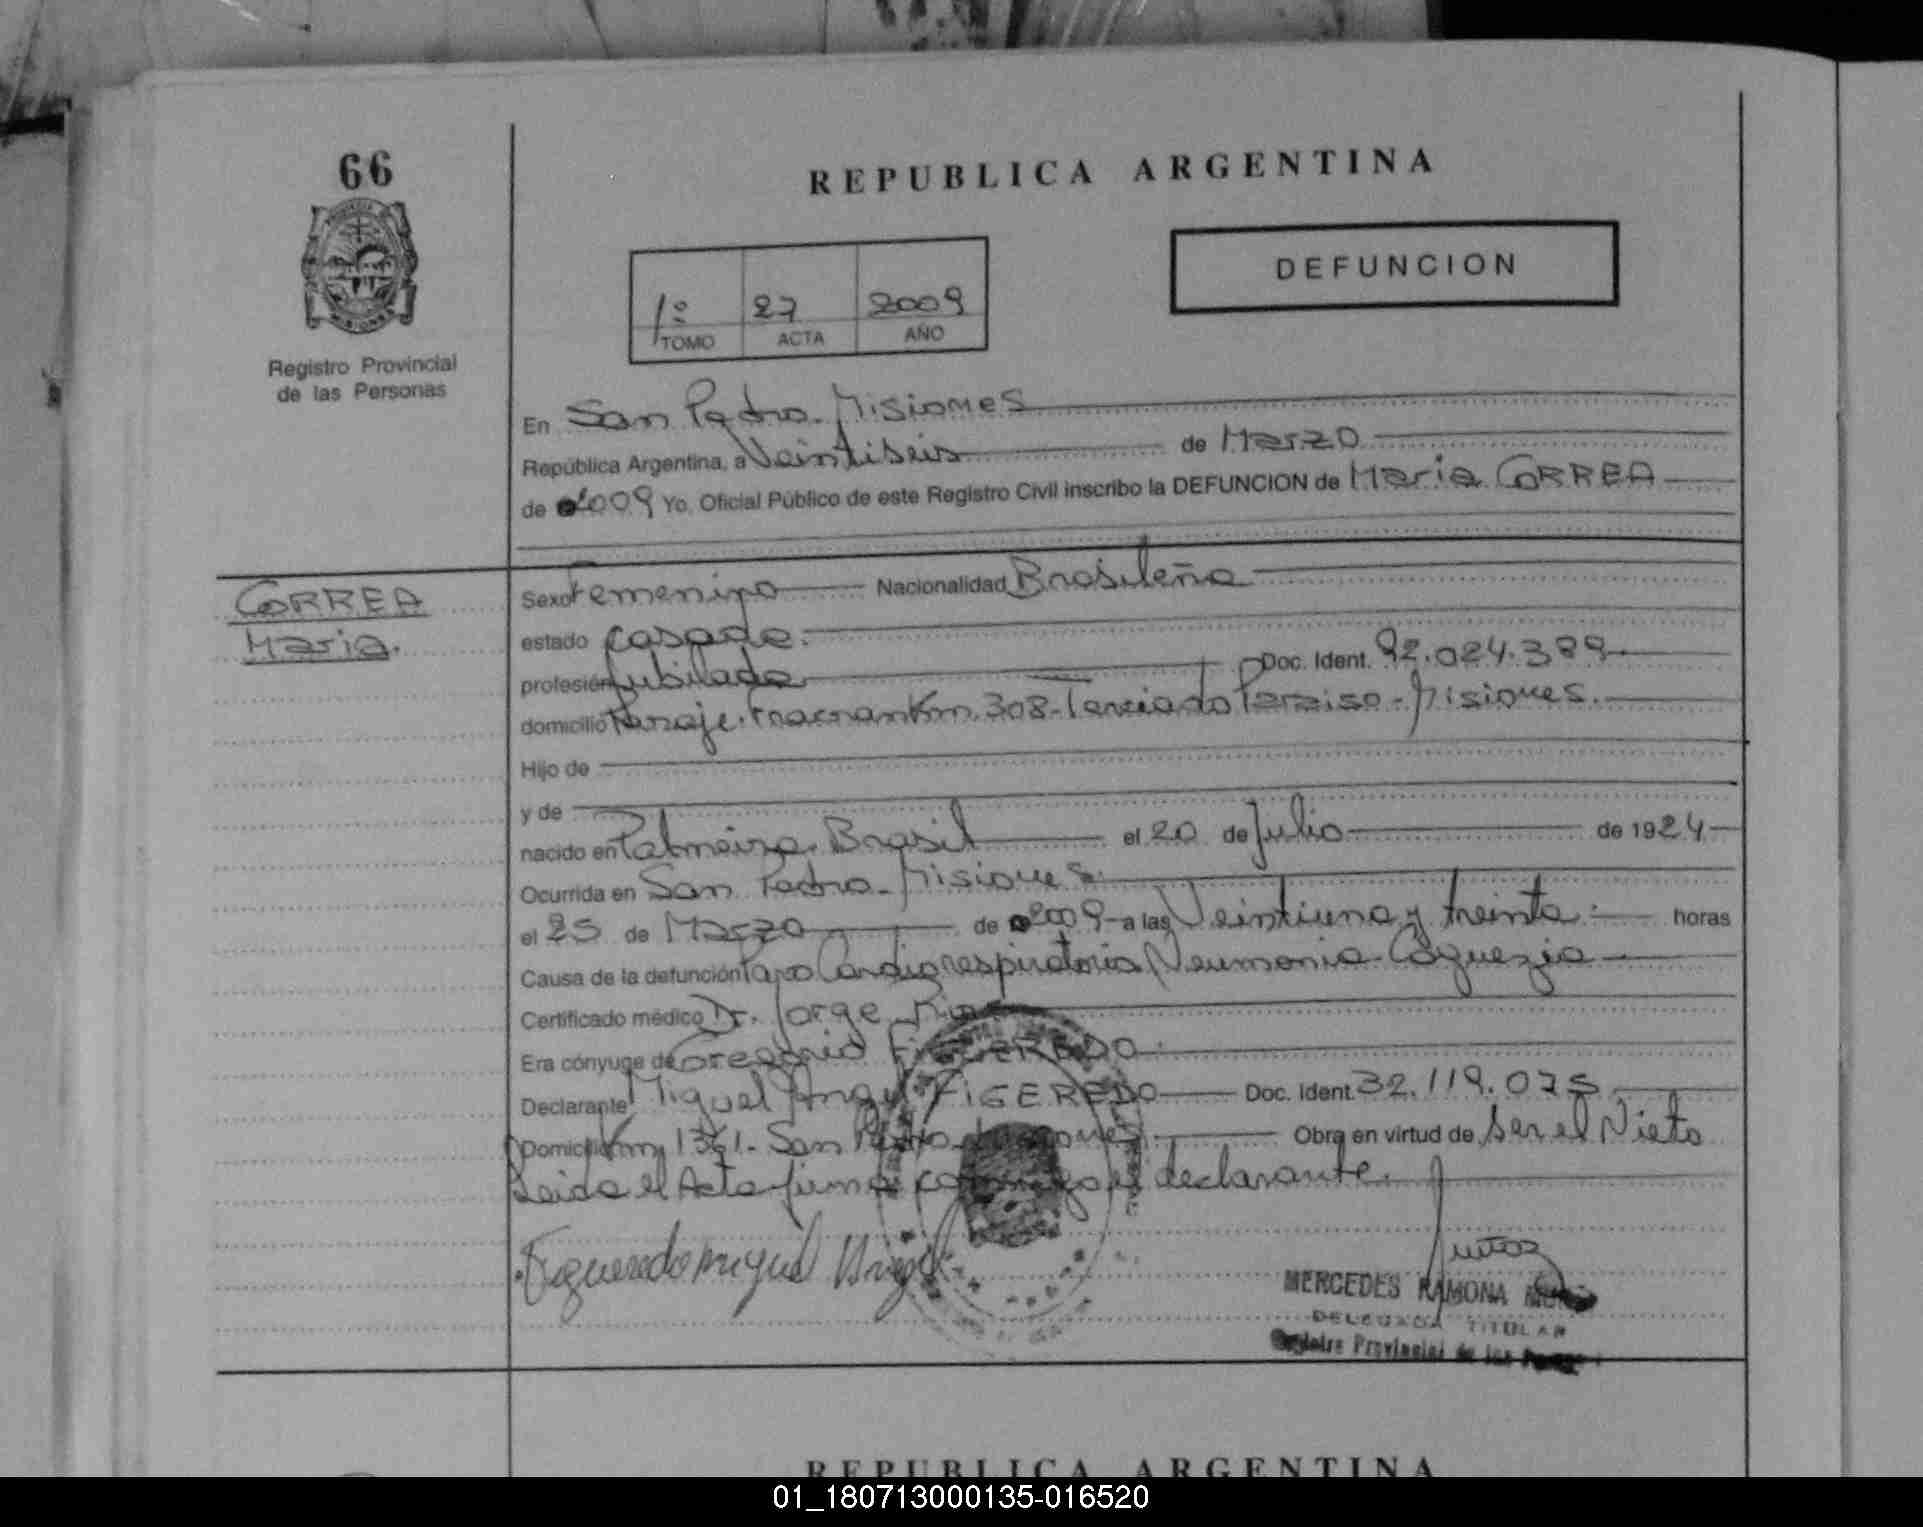 66
REPUBLICA ARGENTINA
DEFUNCION
1º 27 2009
TOMO ACTA AÑO
Registro Provincial
de las Personas
En San Pedro - Misiones
República Argentina, a Veintiseis de Marzo
de 2009 Yo, Oficial Público de este Registro Civil inscribo la DEFUNCION de Maria CORREA
CORREA
Maria.
Sexo Femenino Nacionalidad Brasileña
estado casada.
profesión Jubilada Doc. Ident. 92.024.389
domicilio Paraje Fracran Km. 308 - Terciado Paraiso - Misiones.
Hijo de
y de
nacido en Palmeira Brasil el 20 de Julio de 1924
Ocurrida en San Pedro - Misiones
el 25 de Marzo de 2009 a las Veintiuna y treinta horas
Causa de la defunción Paro Cardiorespiratorio Neumonia Caquexia
Certificado médico Dr. Jorge
Era cónyuge de Gregorio FIGUEREDO
Declarante Miguel Angel FIGEREDO Doc. Ident. 32.119.075
Domicilio Km 1361 - San Pedro Misiones Obra en virtud de Ser el Nieto
Leida el Acta firma conmigo el declarante.
Figueredo miguel Angel
MERCEDES RAMONA
DELEGADA TITULAR
Registro Provincial de las
REPUBLICA ARGENTINA
01_180713000135-016520